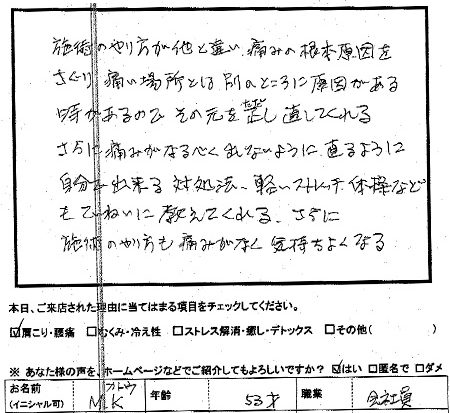 施術のやり方が他と違い 痛みの根本原因を
さぐり 痛い場所とは 別のところに原因がある
時があるので その元を 正し 直してくれる
さらに 痛みがなるべく 出ないように 直るように
自分で出来る 対処法、軽いストレッチ、体操など
もていねいに 教えてくれる、さらに
施術のやり方も 痛みがなく 気持ちよくなる
本日、ご来店された理由に当てはまる項目をチェックしてください。
☑肩こり・腰痛 □むくみ・冷え性 □ストレス解消・癒し・デトックス □その他( )
※ あなた様の声を、ホームページなどでご紹介してもよろしいですか? ☑はい □匿名で □ダメ
お名前 (イニシャル可) M.K 年齢 53才 職業 会社員